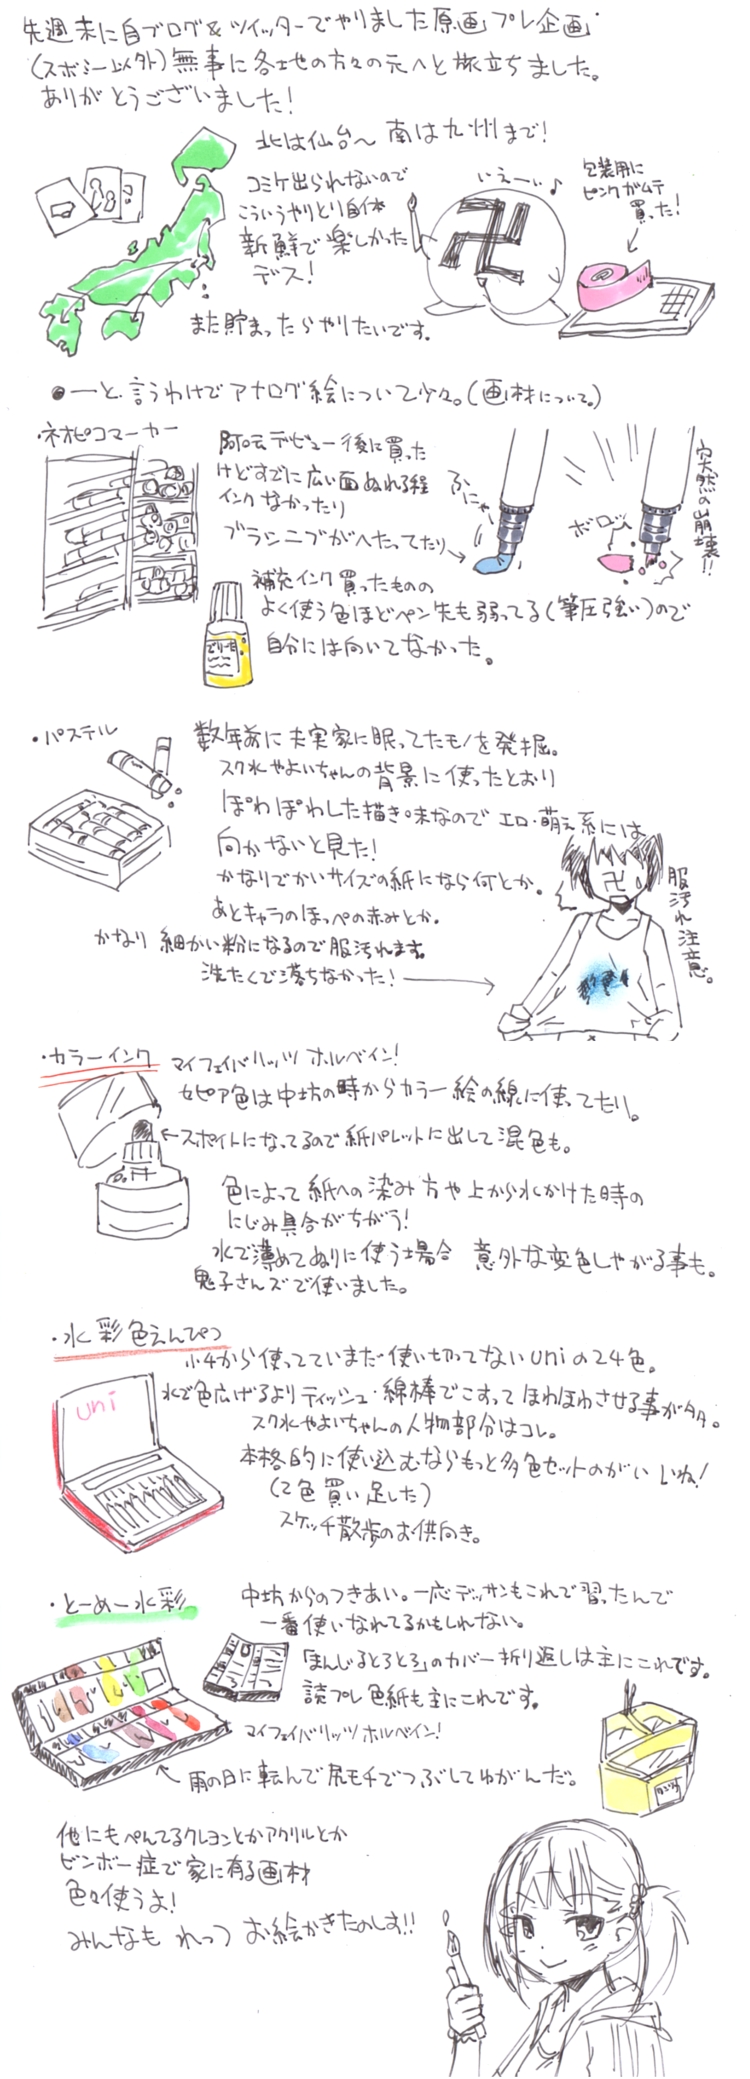 先週末に自ブログ&ツイッターでやりました原画プレ企画
(スポミー以外)無事に各地の方々の元へと旅立ちました。
ありがとうございました!
北は仙台〜南は九州まで!
コミケ出られないので
こういうやりとり自体
新鮮で楽しかった
デス!
また貯まったらやりたいです。
いえーい♪
卍
包装用に
ピンクガムテ
買った!
●ーと言うわけでアナログ絵について少々。(画材について。)
・ネオピコマーカー
阿吽デビュー後に買った
けどすでに広い面ぬれる程
インクなかったり
ブラシニブがへたってたり→
ふにゃ
ボロッ
突然の崩壊!!
補充インク買ったものの
よく使う色ほどペン先も弱ってる(筆圧強い)ので
自分には向いてなかった。
・パステル
数年前に夫実家に眠ってたモノを発掘。
スク水やよいちゃんの背景に使ったとおり
ぽわぽわした描き味なのでエロ・萌え系には
向かないと見た!
かなりでかいサイズの紙になら何とか。
あとキャラのほっぺの赤みとか。
かなり細かい粉になるので服汚れます。
洗たくで落ちなかった!→
卍
服汚れ注意。
・カラーインク
マイフェイバリッツホルベイン!
セピア色は中坊の時からカラー絵の線に使ってたり。
←スポイトになってるので紙パレットに出して混色も。
色によって紙への染み方や上から水かけた時の
にじみ具合がちがう!
水で薄めてぬりに使う場合 意外な変色しやがる事も。
鬼子さんズで使いました。
・水彩色えんぴつ
小4から使ってていまだ使い切ってないuniの24色。
uni
水で色広げるよりティッシュ・綿棒でこすってほわほわさせる事が多々。
スク水やよいちゃんの人物部分はコレ。
本格的に使い込むならもっと多色セットのがいいね!
(2色買い足した)
スケッチ散歩のお供向き。
・とーめー水彩
中坊からのつきあい。一応デッサンもこれで習ったんで
一番使いなれてるかもしれない。
「まんじるとろとろ」のカバー折り返しは主にこれです。
読プレ色紙も主にこれです。
マイフェイバリッツホルベイン!
↖雨の日に転んで尻モチでつぶしてゆがんだ。
他にもぺんてるクレヨンとかアクリルとか
ビンボー症で家に有る画材
色々使うよ!
みんなも れっつ お絵かきたのしす!!